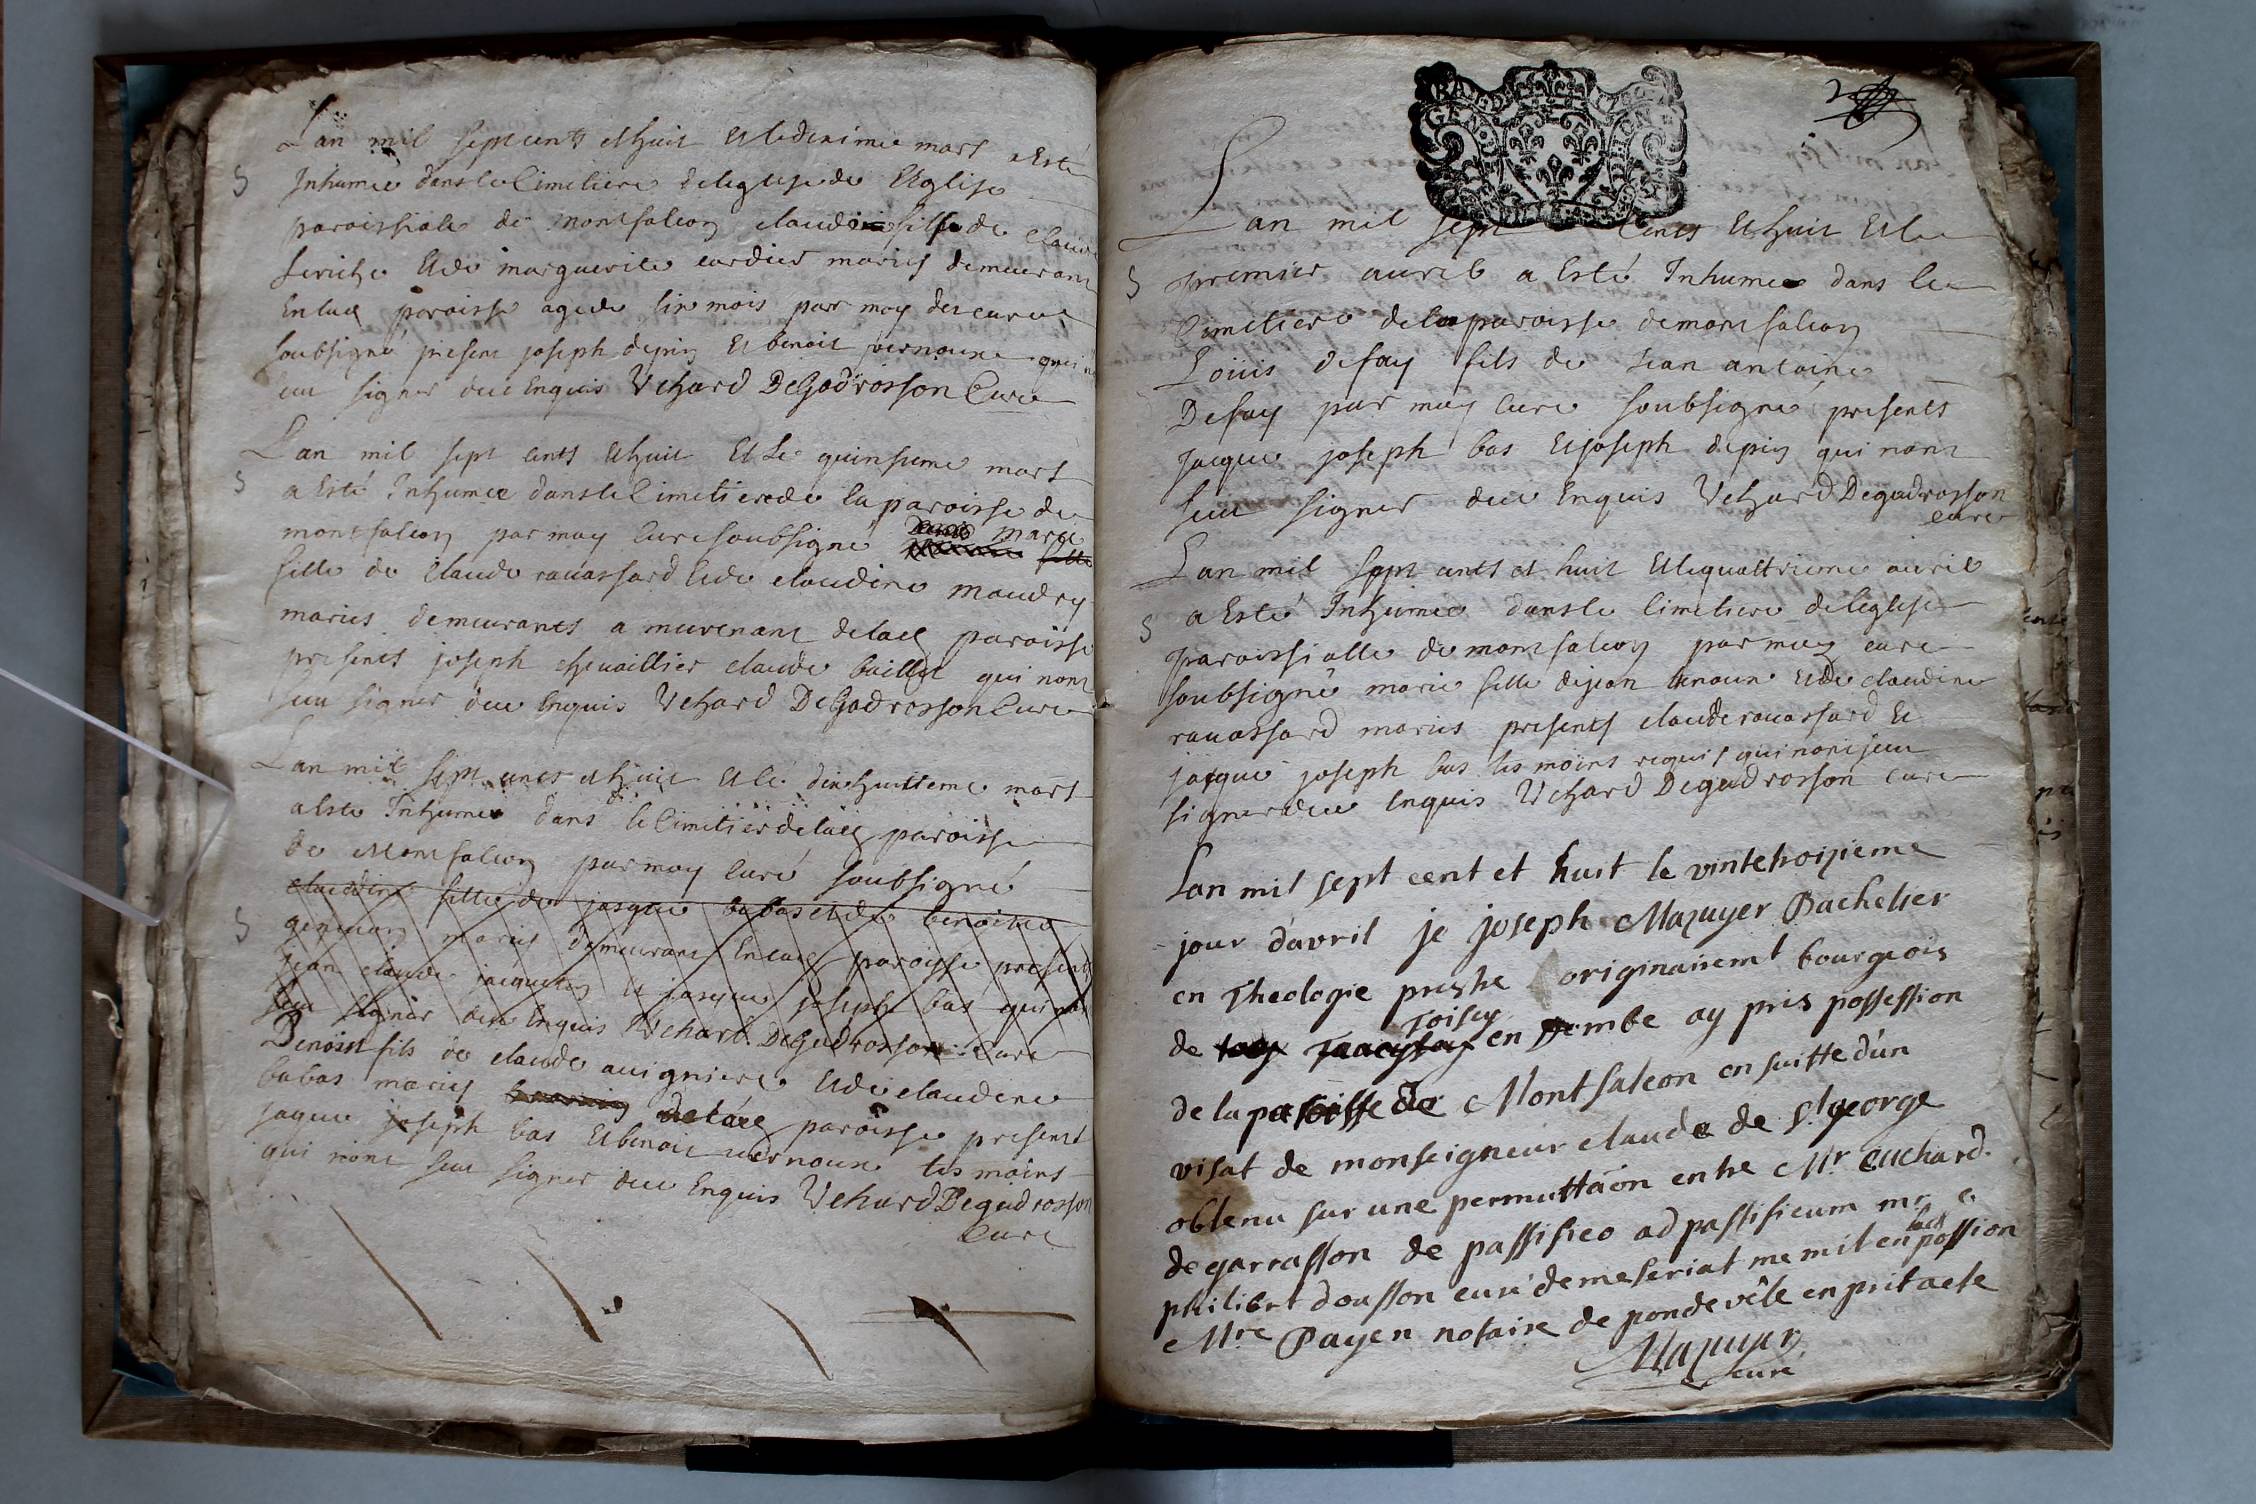 Lan mil sept cents et huit et le dixime mars a esté
S
Inhumée dans le Cimitiere de leglise de Eglise
paroissiale de montfalcon claudine fille de claude
feriche et de marguerite cordier maries demeurant
En lad paroisse agée de six mois par moy dit curé
soubsigné present joseph depin et benoit vernoux qui n
seu signer deue Enquis Uchard DeGadrosson Curé
Lan mil sept cents et huit et Le quinsieme mars
S
a Esté Inhumée dans le Cimetiere de la paroisse de
montfalcon par moy Curé soubsigné marie
fille de Claude rauassard et de claudine maudry
maries demeurants a murenant de lad paroisse
presents joseph chevaillier claude baillet qui nont
seu signer deue Enquis Uchard DeGadrosson Curé
Lan mil sept cents et huit et le dix huittieme mars
a Esté Inhumée dans le Cimitier de lad paroisse
de Montfalcon par moy Curé soubsigné
claudine fille de jasque babas et de benoite
S
maries demeurant En lad paroisse present
jean claude et jasque joseph bas qui nont
seu signer deue Enquis Uchard DeGadrosson Curé
Benoist fils de claude auigniere et de claudine
babas maries de lad paroisse present
jaque joseph bas et benoit vernoux tesmoins
qui nont seu signer deue Enquis Uchard Degadrosson
Curé
2
GEN
Lan mil sept Cents et huit et le
S
premier auril a Esté Inhumee dans le
Cimetiere de la paroisse de montfalcon
Louis defay fils de jean antoine
Defay par moy Curé soubsigné presents
jacque joseph bas et joseph depin qui nont
seu signer deue Enquis Uchard Degadrosson
curé
Lan mil sept cents et huit et le quattrieme auril
a Esté Inhumee dans le Cimetiere de leglise
S
paroissialle de montfalcon par moy curé
soubsigné marie fille de jean et de claudine
rauassard maries presents claude rauassard et
jacque joseph bas tesmoins requis qui nont seu
signer deue Enquis Uchard Degadrosson curé
Lan mil sept cent et huit le vintetroizieme
jour d'avril je joseph Mazuyer Bachelier
en Theologie prestre originairemt bourgeois
Toisey
de en Dombe ay pris possession
de la paroisse de Montfalcon en suitte d'un
visat de monseigneur claude de St george
obtenu sur une permuttaon entre Mr euchard
degarrasson de passifico ad passificum mr
philibert dousson curé de meseriat me mit en possion
Mre Payen notaire de pondevêle en prit acte
Mazuyer
curé